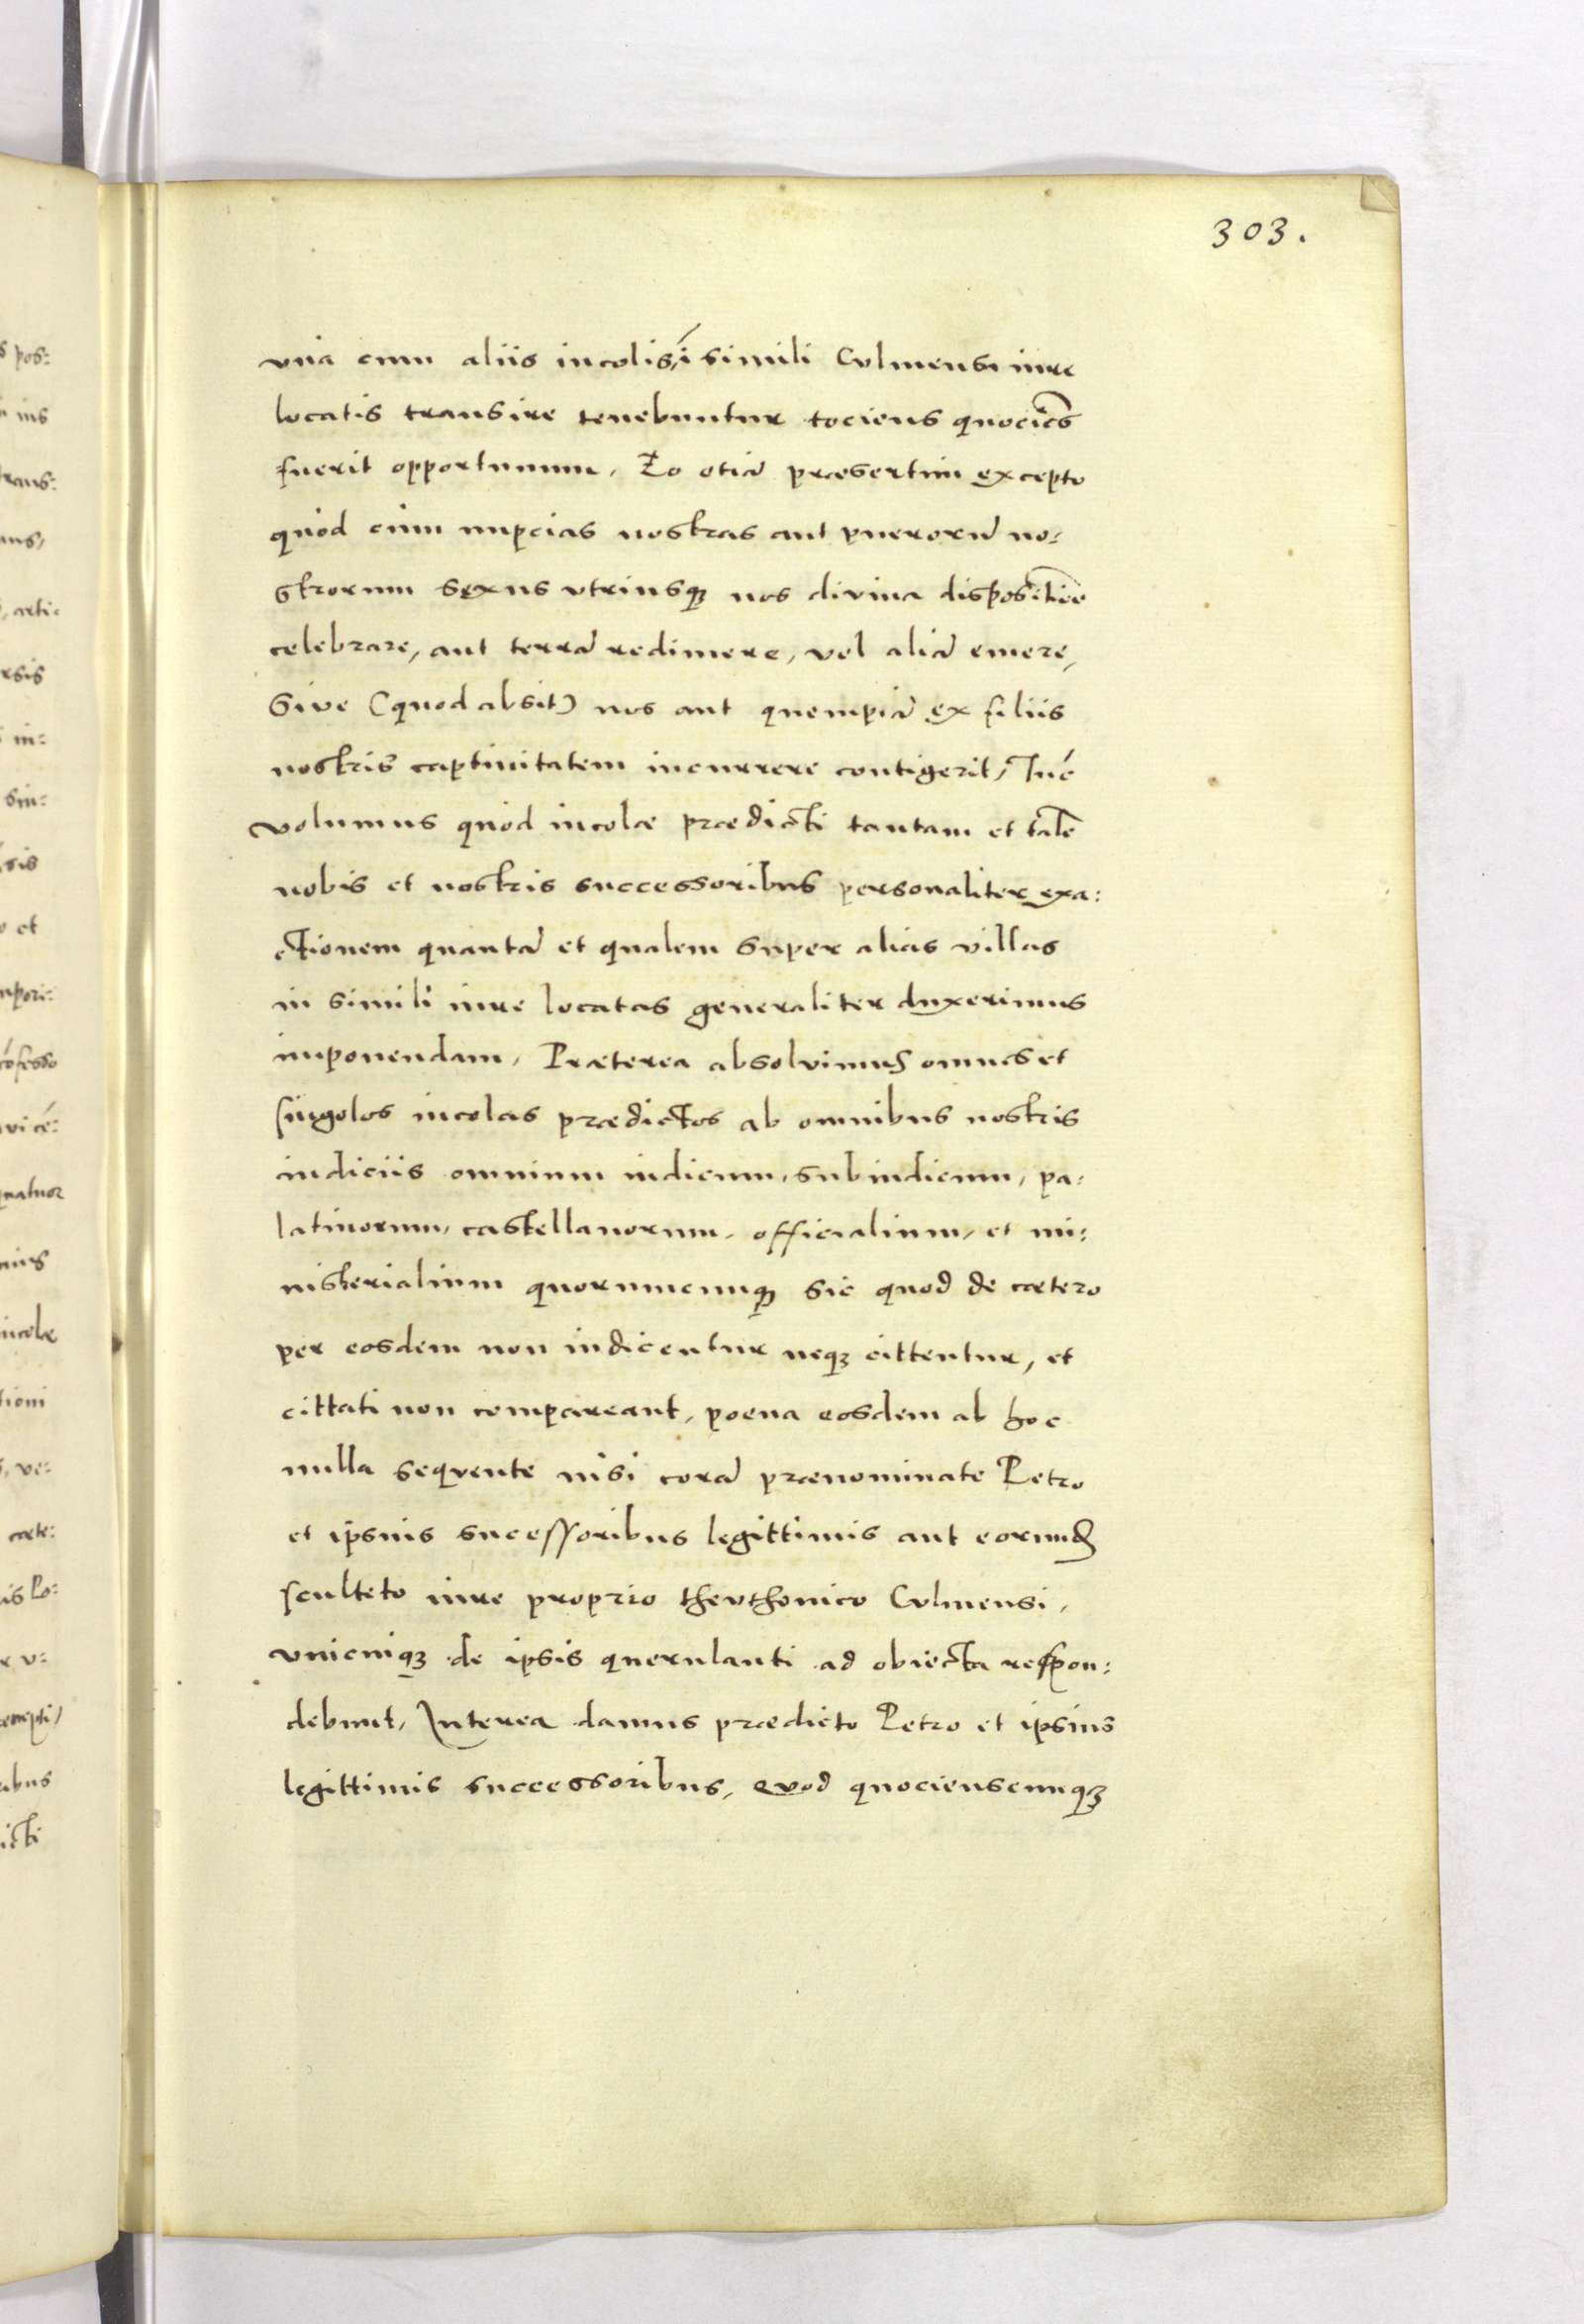 303.
vna cum aliis incolis, ĩ simili Culmensi iure
locatis transire tenebuntur tociens quociẽs
fuerit opportunum, Eo etiã praesertim excepto
quod cùm nupcias nostras aut puerorũ no:
strorum sexus vtriusqꝫ nos divina dispositiõe
celebrare, aut terrã redimere, vel aliã emere,
Sive (quod absit) nos aut quempiã ex filiis
nostris captiuitatem incurrere contigerit, Tũc
volumus quod incolae praedicti tantam et talẽ
nobis et nostris successoribus personaliter exa:
ctionem quantã et qualem super alias villas
in simili iure locatas generaliter duxerimus
imponendam, Praeterea absolvimus omnes et
singolos incolas praedictos ab omnibus nostris
iudiciis omnium iudicum, subiudicum, pa:
latinorum, castellanorum, officialium, et mi:
nisterialium quorumcumqꝫ sic quod de caetero
per eosdem non iudicentur neqꝫ cittentur, et
cittati non compareant, poena eosdem ab hoc
nulla sequente nisi corã praenominate Petro
et ipsius sucessoribus legittimis aut eorundẽ
sculteto iure proprio theuthonico Culmensi,
vnicuiqꝫ de ipsis querulanti ad obiecta respon:
debunt, Interea damus praedicto Petro et ipsius
legittimis successoribus, Quod quocienscumqꝫ